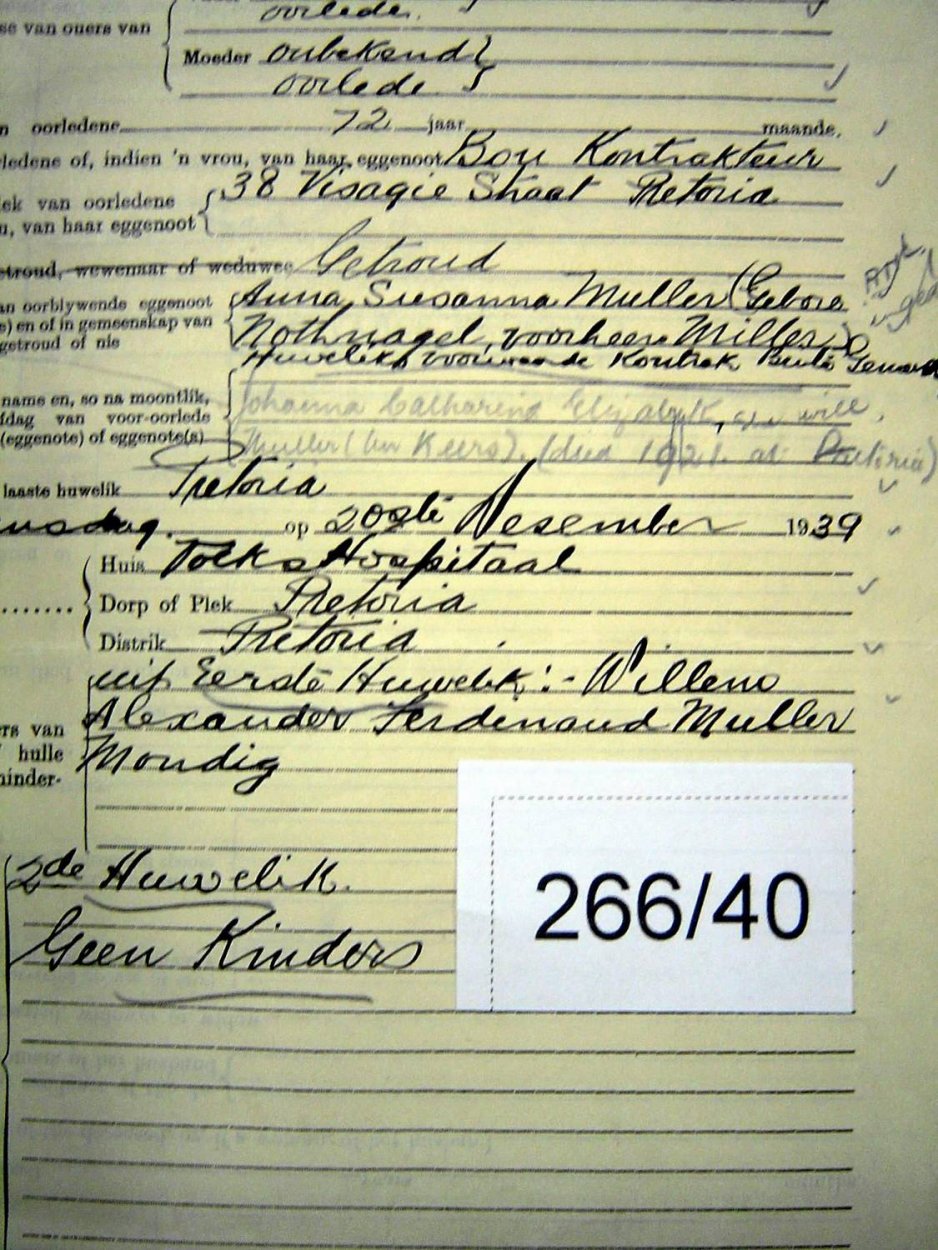 oorlede.
se van ouers van
Moeder onbekend
oorlede
n oorledene 72 jaar maande.
ledene of, indien 'n vrou, van haar eggenoot Bou Kontrakteur
ek van oorledene 38 Visagie Straat Pretoria
n, van haar eggenoot
etroud, wewenaar of weduwee Getroud
an oorblywende eggenoot Anna Susanna Muller (Gebore
e) en of in gemeenskap van Nothnagel, voorheen Miller)
getroud of nie Huweliks voorwaarde Kontrak Buite
name en, so na moontlik, Johanna Catharina Elizabeth,
fdag van voor-oorlede
(eggenote) of eggenote(s) Muller (born Keers). (died 1921. at Pretoria)
laaste huwelik Pretoria
nsdag. op 20ste Desember 1939
Huis Volks Hospitaal
Dorp of Plek Pretoria
Distrik Pretoria
uit Eerste Huwelik:- Willem
Alexander Ferdinand Muller
rs van
hulle Mondig
inder-
2de Huwelik.
Geen Kinders
266/40